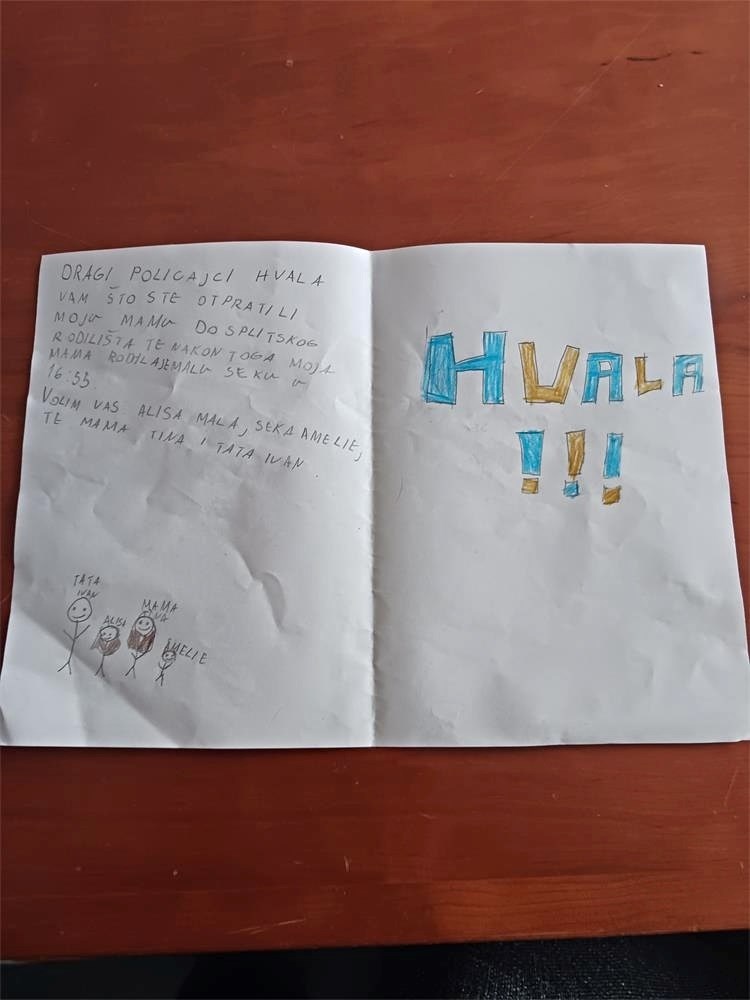 DRAGI POLICAJCI HVALA
VAM ŠTO STE OTPRATILI
MOJU MAMU DO SPLITSKOG
RODILIŠTA TE NAKON TOGA MOJA
MAMA RODILA JE MALU SEKU U
16:53.
VOLIM VAS ALISA MALA, SEKA AMELIE,
TE MAMA TINA I TATA IVAN.
TATA
IVAN
ALISA
MAMA
TINA
AMELIE
HVALA
!!!